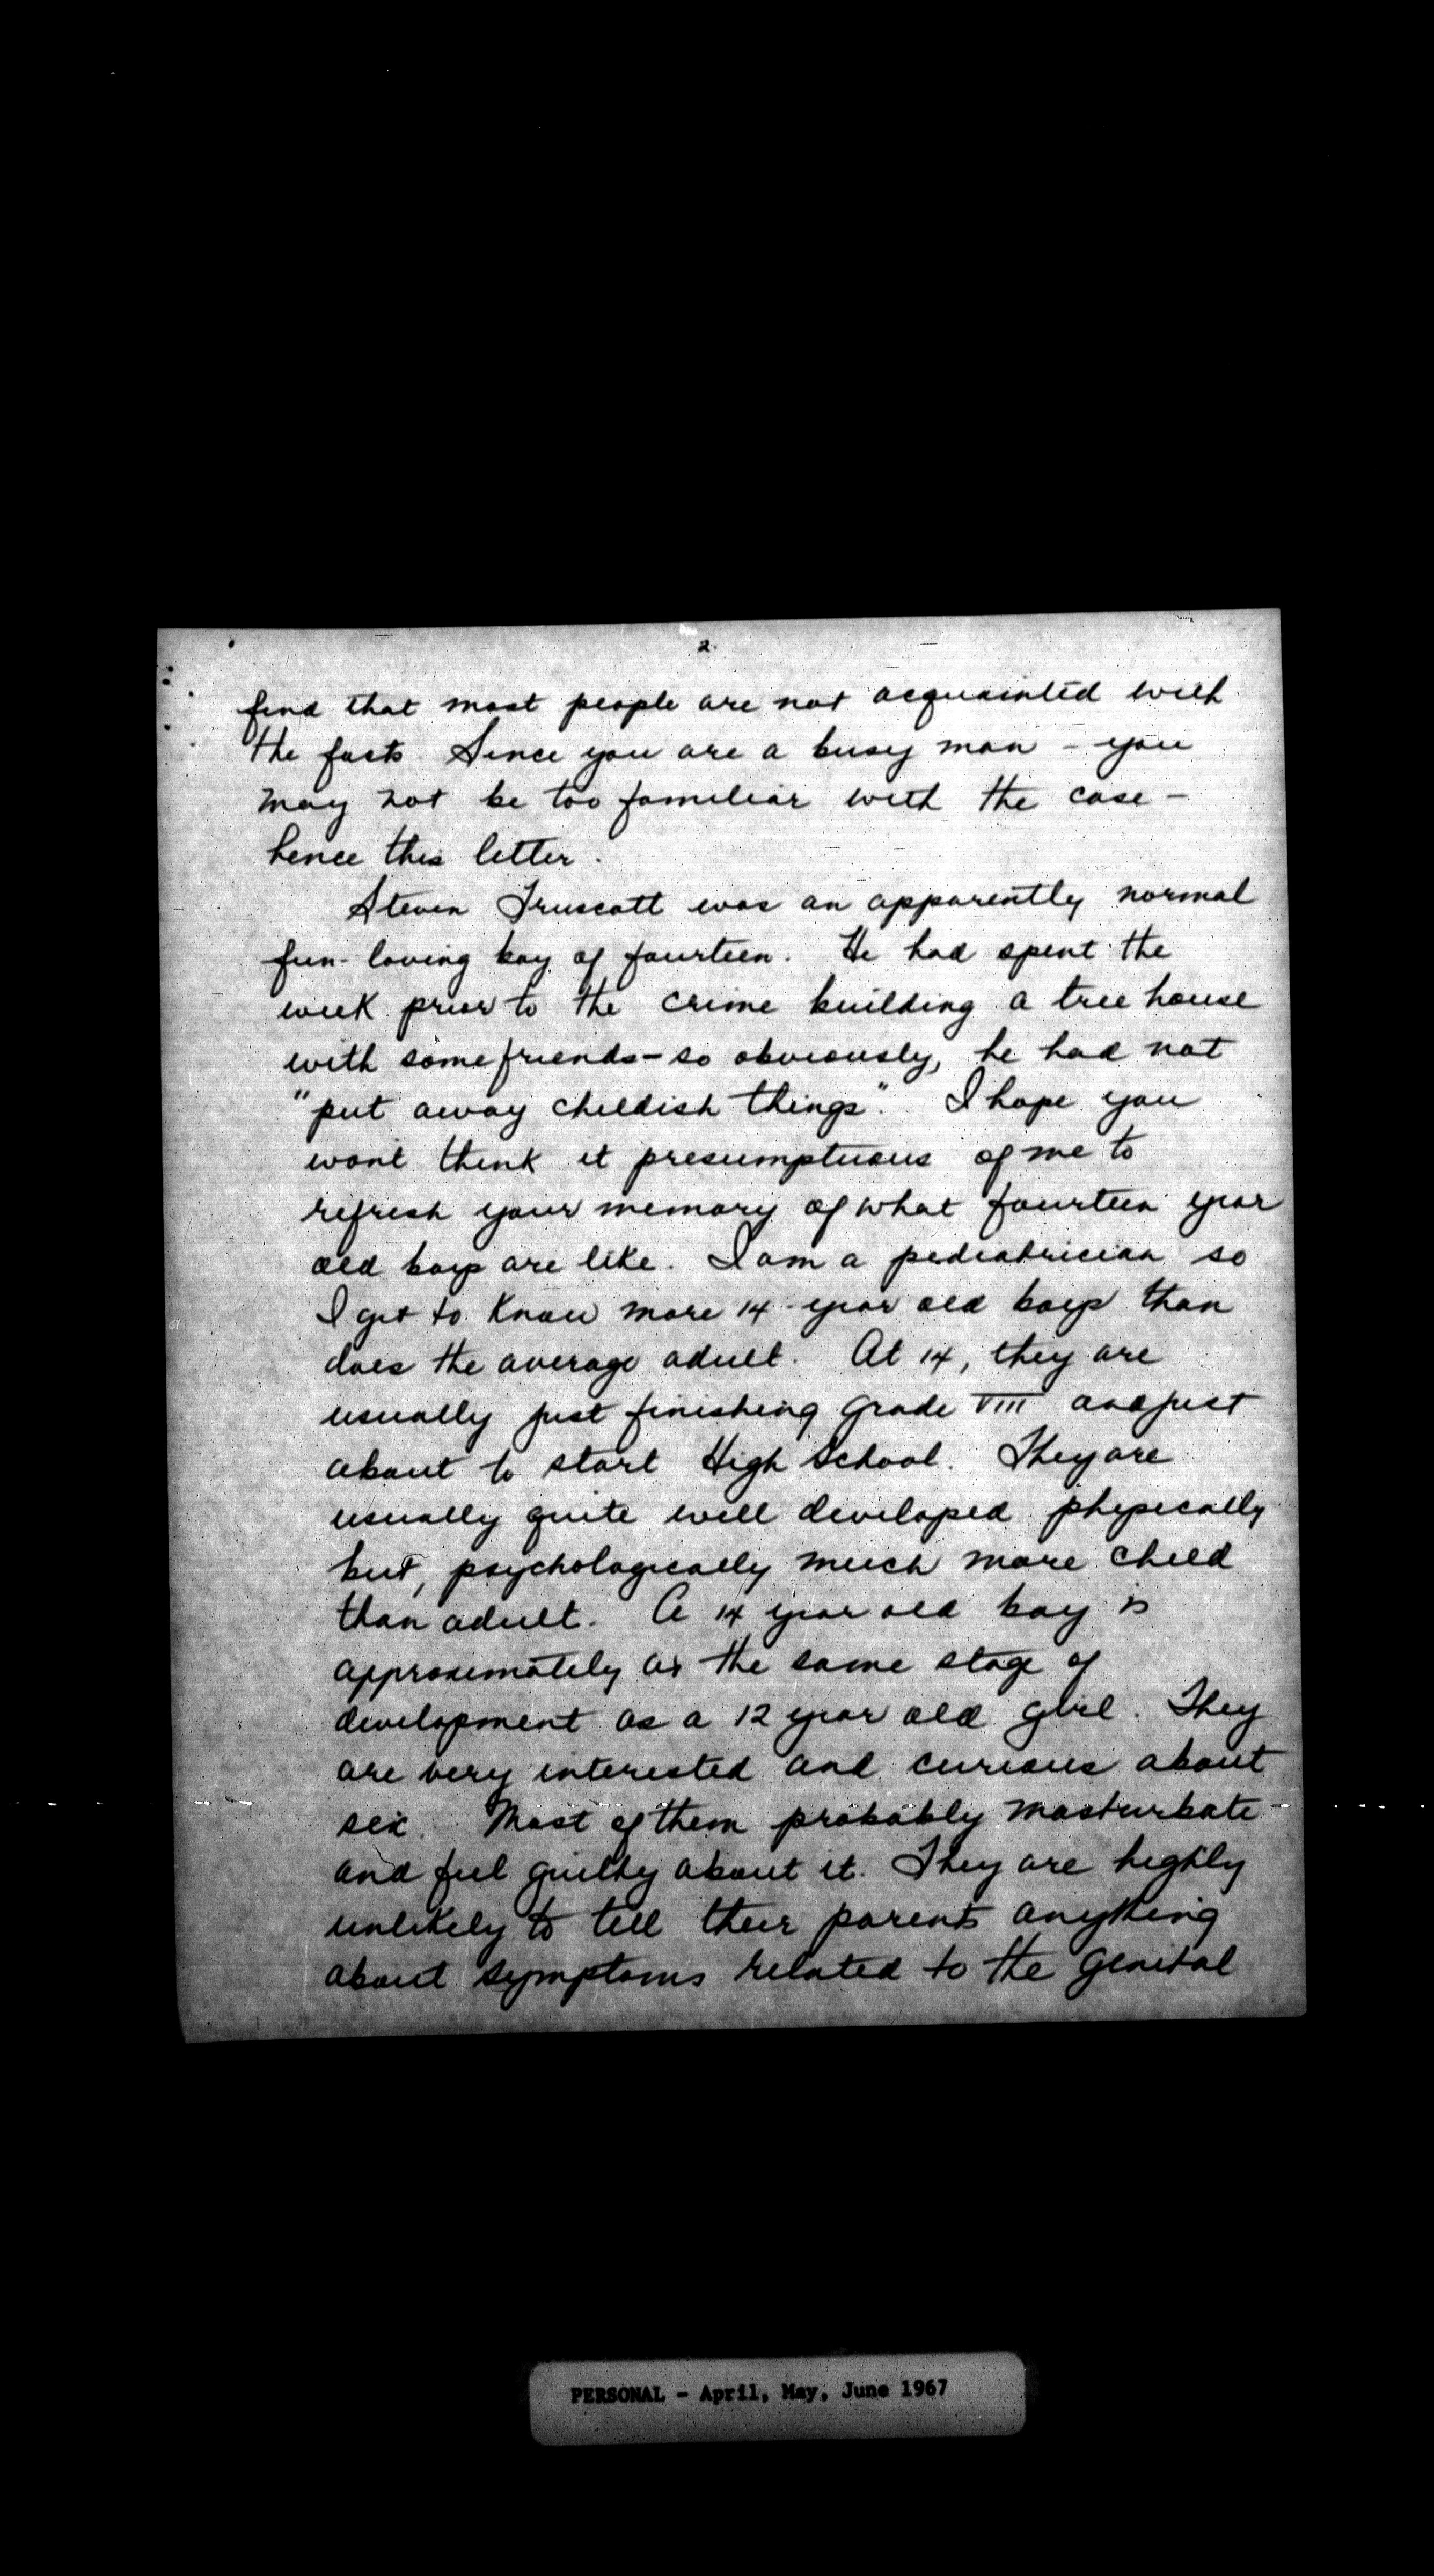 2.
find that most people are not acquainted with
the facts Since you are a busy man - you
may not be too familiar with the case -
hence this letter.
Steven Truscott was an apparently normal
fun-loving boy of fourteen. He had spent the
week prior to the crime building a tree house
with some friends - so obviously, he had not
"put away childish things". I hope you
wont think it presumptuous of me to
refresh your memory of what fourteen year
old boys are like. I am a pediatrician so
I get to know more 14 year old boys than
does the average adult. At 14, they are
usually just finishing grade VIII and just
about to start High School. They are
usually quite well developed physically
but, psychologically much more child
than adult. A 14 year old boy is
approximately at the same stage of
development as a 12 year old girl. They
are very interested and curious about
sex. Most of them probably masturbate
and feel guilty about it. They are highly
unlikely to tell their parents anything
about symptoms related to the genital
PERSONAL - April, May, June 1967